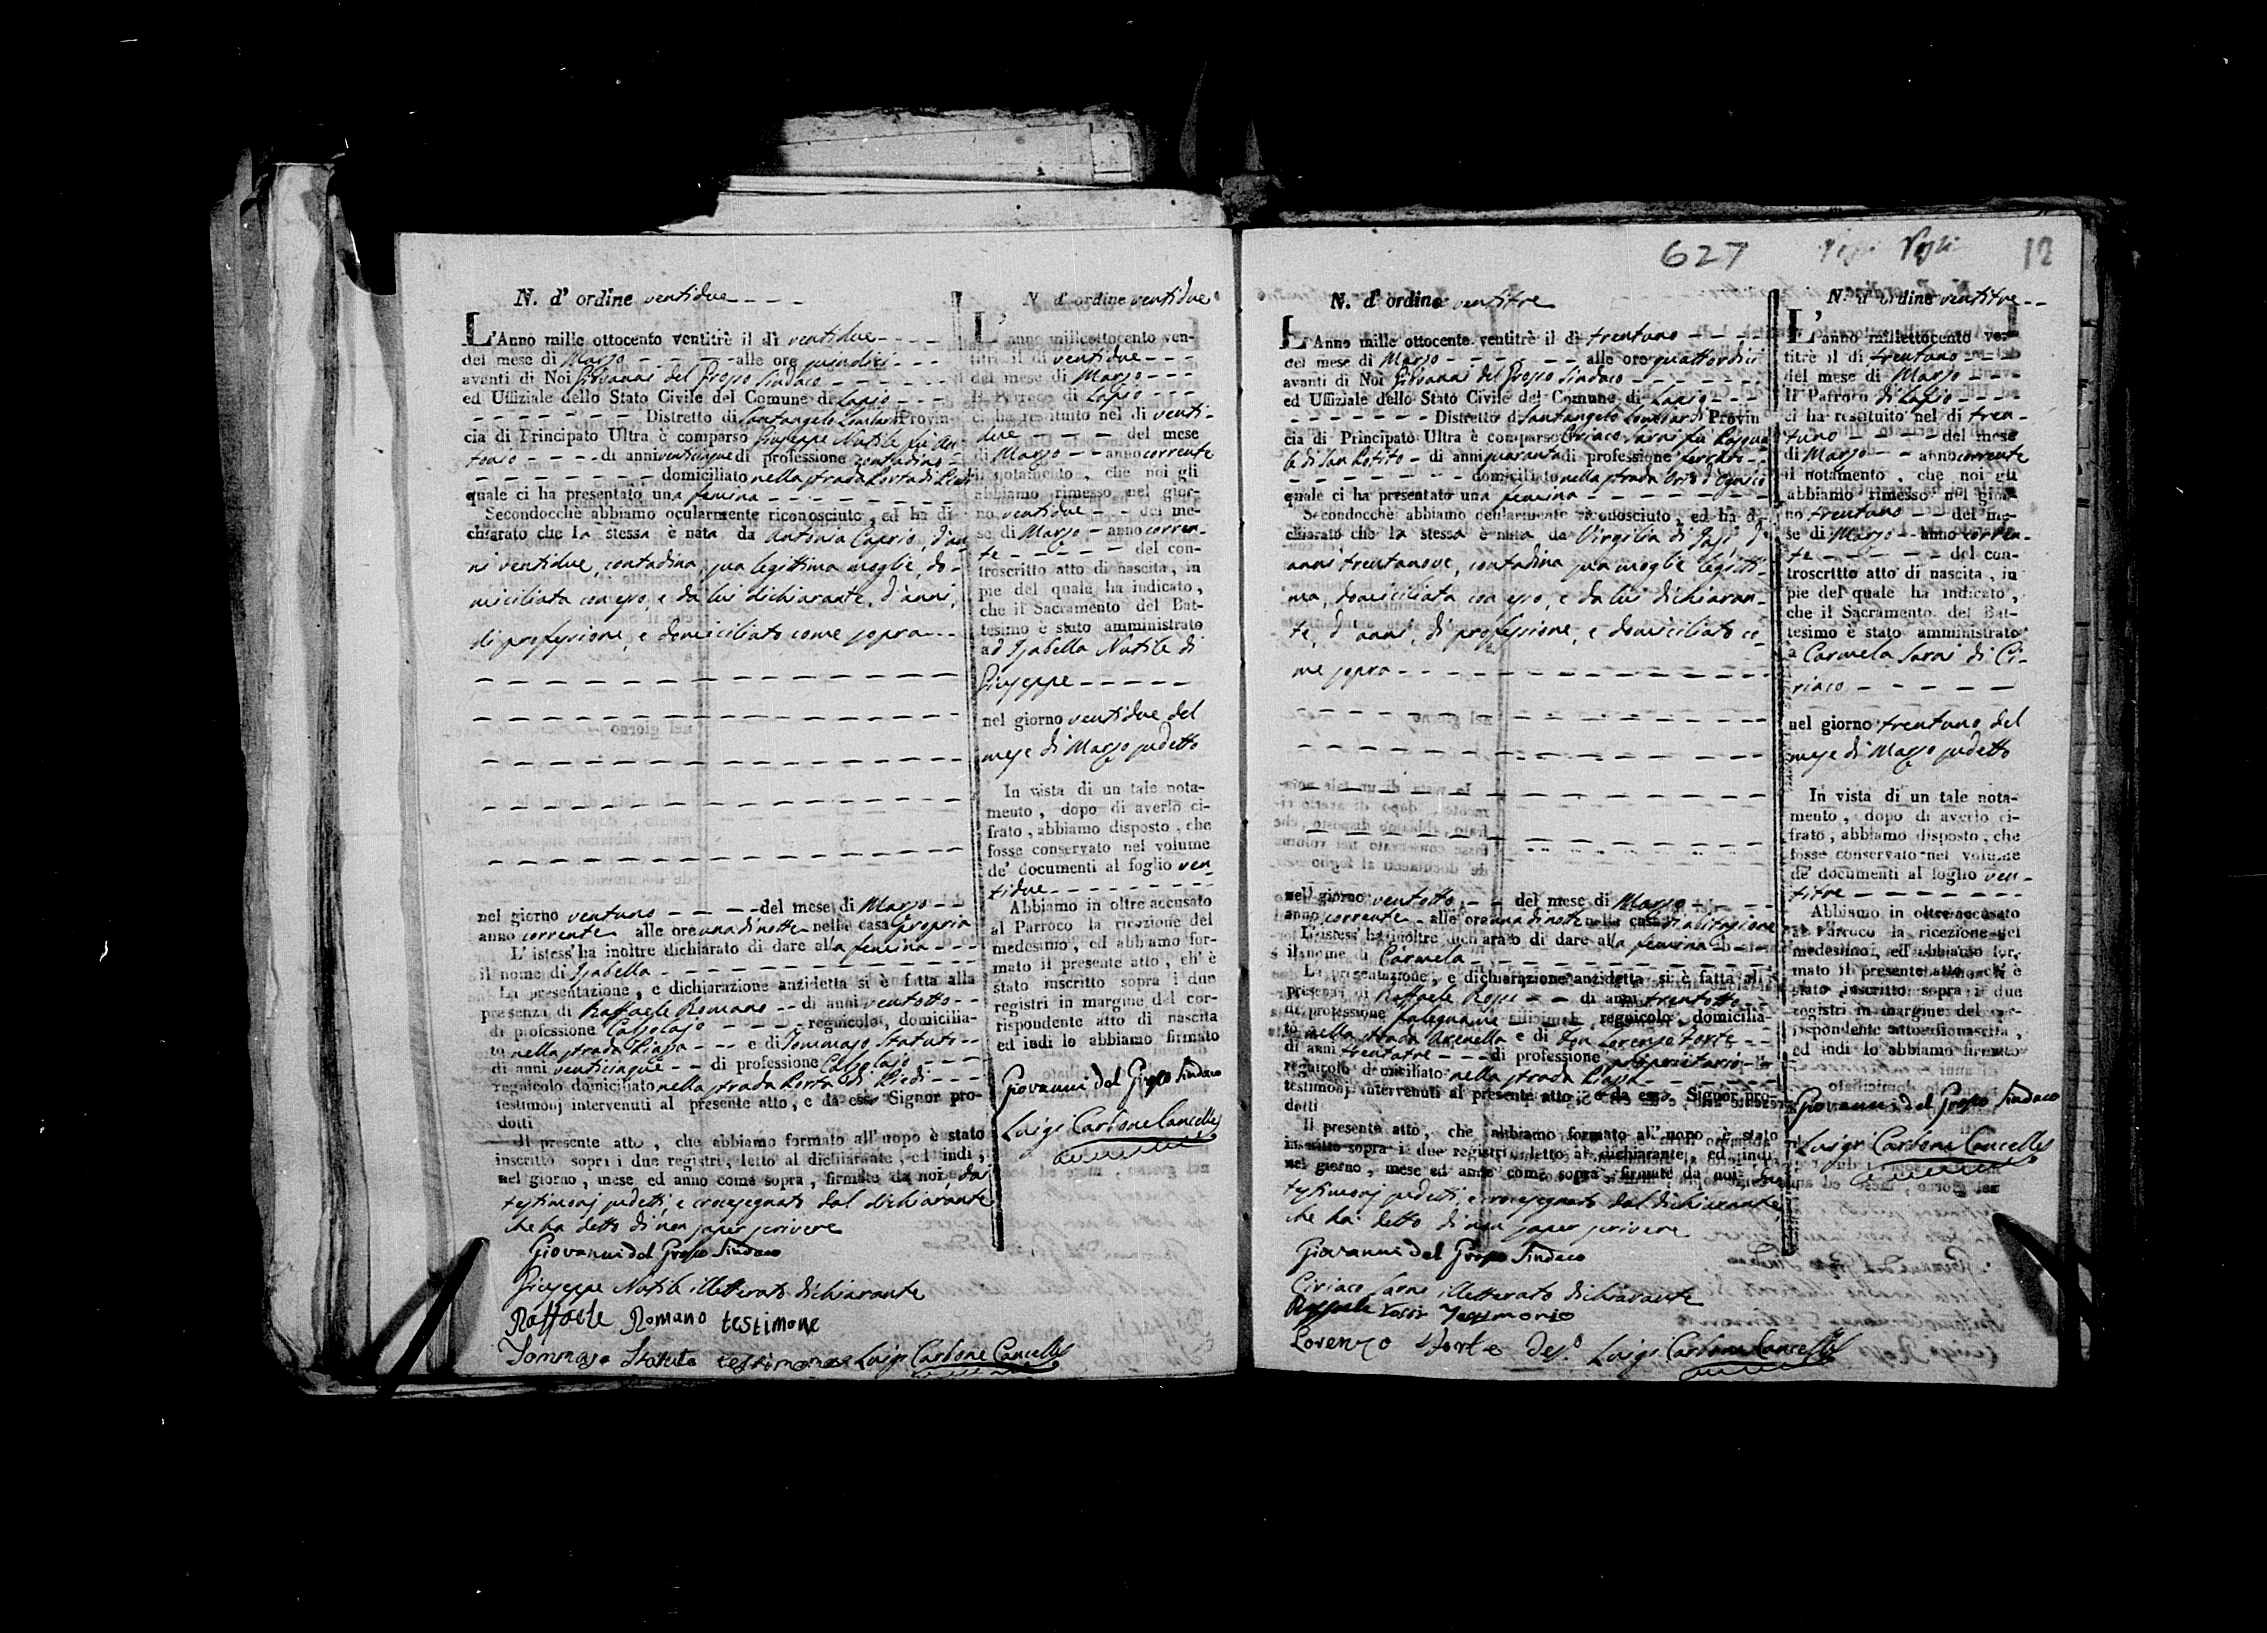 N. d' ordine ventidue
L'Anno mille ottocento ventitrè il dì ventidue
del mese di Marzo alle ore quindici
avanti di Noi Giovanni del Grosso Sindaco
ed Uffiziale dello Stato Civile del Comune di Lapio
Distretto di Santangelo Lombardi Provin
cia di Principato Ultra è comparso Giuseppe Nutile fu An
tonio di anni venticinque di professione contadino
domiciliato nella strada Porta di Piedi
quale ci ha presentato una femina
Secondocchè abbiamo ocularmente riconosciuto, ed ha di
chiarato che la stessa è nata da Antonia Caprio, d'an
ni ventidue, contadina, sua legittima moglie, do-
miciliata con esso, e da lui dichiarante, d'anni,
di professione, e domiciliato come sopra
nel giorno ventuno del mese di Marzo
anno corrente alle ore una di notte nella casa propria
L' istess' ha inoltre dichiarato di dare alla femina
il nome di Isabella
La presentazione, e dichiarazione anzidetta si è fatta alla
presenza di Raffaele Romano di anni ventotto
di professione Calzolajo regnicolo, domicilia-
to nella strada Piazza e di Tommaso Statuto
di anni venticinque di professione Calzolajo
regnicolo domiciliato nella strada Porta di Piedi
testimonj intervenuti al presente atto, e da esso Signor pro-
dotti
Il presente atto, che abbiamo formato all' uopo è stato
inscritto sopra i due registri, letto al dichiarante, ed indi,
nel giorno, mese ed anno come sopra, firmato da noi, dai
testimonj sudetti, e crocesegnato dal dichiarante
che ha detto di non saper scrivere
Giovanni del Grosso Sindaco
Giuseppe Nutile illetterato dichiarante
Raffaele Romano testimone
Tommaso Statuto testimone Luigi Carbone Cancell.
N. d' ordine ventidue
L' anno millettocento ven-
titrè il dì ventidue
del mese di Marzo
Il Parroco di Lapio
ci ha restituito nel dì venti-
due del mese
di Marzo anno corrente
il notamento, che noi gli
abbiamo rimesso nel gior-
no ventidue del me-
se di Marzo anno corren-
te del con-
troscritto atto di nascita, in
pie del quale ha indicato,
che il Sacramento del Bat-
tesimo è stato amministrato
ad Isabella Nutile di
Giuseppe
nel giorno ventidue del
mese di Marzo sudetto
In vista di un tale nota-
mento, dopo di averlo ci-
frato, abbiamo disposto, che
fosse conservato nel volume
de' documenti al foglio ven
tidue
Abbiamo in oltre accusato
al Parroco la ricezione del
medesimo, ed abbiamo for-
mato il presente atto, ch' è
stato inscritto sopra i due
registri in margine del cor-
rispondente atto di nascita
ed indi lo abbiamo firmato
Giovanni del Grosso Sindaco
Luigi Carbone Cancell.
627
12
N. d' ordine ventitre
L'Anno mille ottocento ventitrè il dì trentuno
del mese di Marzo alle ore quattordici
avanti di Noi Giovanni del Grosso Sindaco
ed Uffiziale dello Stato Civile del Comune di Lapio
Distretto di Santangelo Lombardi Provin
cia di Principato Ultra è comparso Ciriaco Sarni fu Pasqua
le di San Potito di anni quaranta di professione ferraro
domiciliato nella strada
quale ci ha presentato una femina
Secondocchè abbiamo ocularmente riconosciuto, ed ha di-
chiarato, che la stessa è nata da Virgilia di Jasi, d'
anni trentanove, contadina sua moglie legitti-
ma, domiciliata con esso, e da lui dichiaran-
te, d' anni, di professione, e domiciliato co-
me sopra
nel giorno ventotto del mese di Marzo
anno corrente alle ore una di notte nella casa di abitazione
L'istess' ha inoltre dichiarato di dare alla femina
il nome di Carmela
La presentazione, e dichiarazione anzidetta si è fatta alla
presenza di Raffaele Rossi di anni trentotto
di professione falegname regnicolo domicilia-
to nella strada Arenella e di Don Lorenzo Forte
di anni trentatre di professione proprietario
regnicolo domiciliato nella strada Piazza
testimonj intervenuti al presente atto, e da esso Signor pro-
dotti
Il presente atto, che abbiamo formato all' uopo è stato
inscritto sopra i due registri, letto al dichiarante, ed indi
nel giorno, mese ed anno come sopra firmato da noi, dai
testimonj sudetti, e crocesegnato dal dichiarante,
che ha detto di non saper scrivere
Giovanni del Grosso Sindaco
Ciriaco Sarni illetterato dichiarante
Raffaele Rossi Testimonio
Lorenzo Forte Luigi Carbone Cancell.
N. d' ordine ventitre
L' anno millettocento ven-
titrè il dì trentuno
del mese di Marzo
Il Parroco di Lapio
ci ha restituito nel dì tren-
tuno del mese
di Marzo anno corrente
il notamento, che noi gli
abbiamo rimesso nel gior-
no trentuno del me-
se di Marzo anno corren-
te del con-
troscritto atto di nascita, in
pie del quale ha indicato,
che il Sacramento del Bat-
tesimo è stato amministrato
a Carmela Sarni di Ci-
riaco
nel giorno trentuno del
mese di Marzo sudetto
In vista di un tale nota-
mento, dopo di averlo ci-
frato, abbiamo disposto, che
fosse conservato nel volume
de' documenti al foglio ven-
titre
Abbiamo in oltre accusato
al Parroco la ricezione del
medesimo, ed abbiamo for-
mato il presente atto, ch' è
stato inscritto sopra i due
registri in margine del cor-
rispondente atto di nascita,
ed indi lo abbiamo firmato
Giovanni del Grosso Sindaco
Luigi Carbone Cancell.